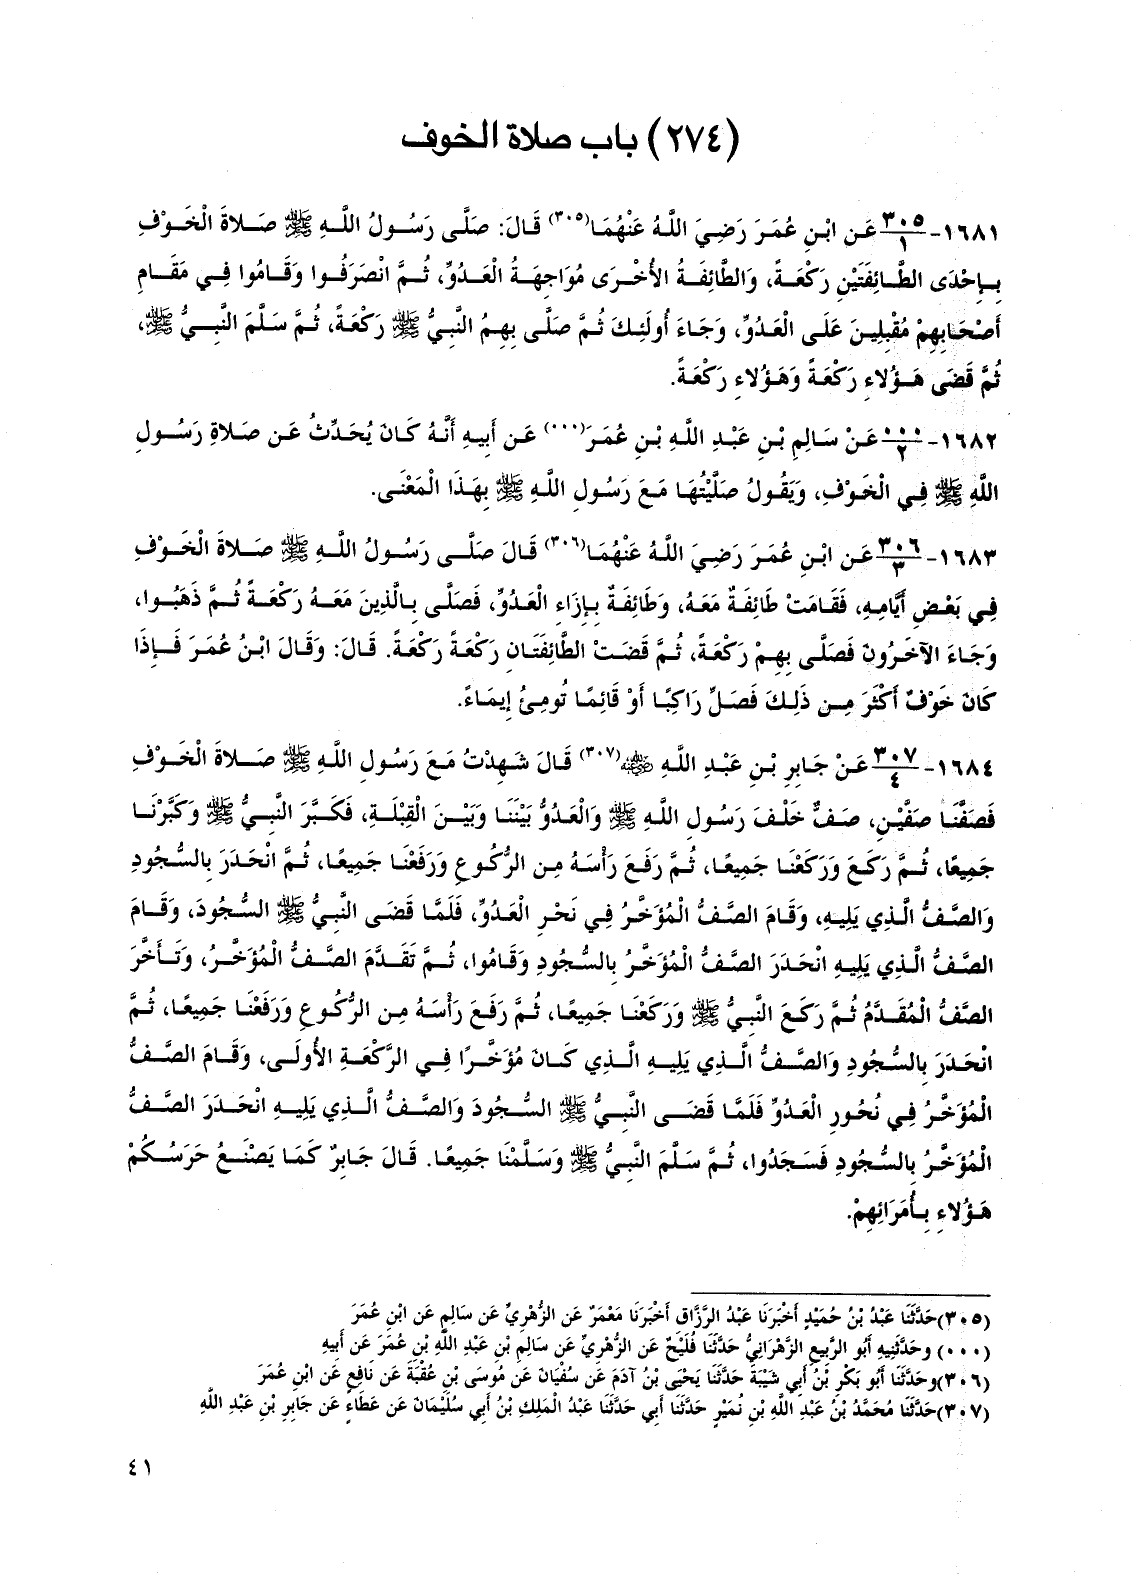 (٢٧٤) باب صلاة الخوف
١٦٨١-٣٠٥/١ عَنِ ابْنِ عُمَرَ رَضِيَ اللَّهُ عَنْهُمَا(٣٠٥) قَالَ: صَلَّى رَسُولُ اللَّهِ ﷺ صَلاةَ الْخَوْفِ
بِإِحْدَى الطَّائِفَتَيْنِ رَكْعَةً، وَالطَّائِفَةُ الأُخْرَى مُوَاجِهَةُ الْعَدُوِّ، ثُمَّ انْصَرَفُوا وَقَامُوا فِي مَقَامِ
أَصْحَابِهِمْ مُقْبِلِينَ عَلَى الْعَدُوِّ، وَجَاءَ أُولَئِكَ ثُمَّ صَلَّى بِهِمُ النَّبِيُّ ﷺ رَكْعَةً، ثُمَّ سَلَّمَ النَّبِيُّ ﷺ،
ثُمَّ قَضَى هَؤُلاءِ رَكْعَةً وَهَؤُلاءِ رَكْعَةً.
١٦٨٢-٠٠٠/٢ عَنْ سَالِمِ بْنِ عَبْدِ اللَّهِ بْنِ عُمَرَ(٠٠٠) عَنِ أَبِيهِ أَنَّهُ كَانَ يُحَدِّثُ عَنِ صَلاةِ رَسُولِ
اللَّهِ ﷺ فِي الْخَوْفِ، وَيَقُولُ صَلَّيْتُهَا مَعَ رَسُولِ اللَّهِ ﷺ بِهَذَا الْمَعْنَى.
١٦٨٣-٣٠٦/٣ عَنِ ابْنِ عُمَرَ رَضِيَ اللَّهُ عَنْهُمَا(٣٠٦) قَالَ صَلَّى رَسُولُ اللَّهِ ﷺ صَلاةَ الْخَوْفِ
فِي بَعْضِ أَيَّامِهِ، فَقَامَتْ طَائِفَةٌ مَعَهُ، وَطَائِفَةٌ بِإِزَاءِ الْعَدُوِّ، فَصَلَّى بِالَّذِينَ مَعَهُ رَكْعَةً ثُمَّ ذَهَبُوا،
وَجَاءَ الآخَرُونَ فَصَلَّى بِهِمْ رَكْعَةً، ثُمَّ قَضَتْ الطَّائِفَتَانِ رَكْعَةً رَكْعَةً. قَالَ: وَقَالَ ابْنُ عُمَرَ فَإِذَا
كَانَ خَوْفٌ أَكْثَرَ مِنِ ذَلِكَ فَصَلِّ رَاكِبًا أَوْ قَائِمًا تُومِئُ إِيمَاءً.
١٦٨٤-٣٠٧/٤ عَنْ جَابِرِ بْنِ عَبْدِ اللَّهِ ﵁(٣٠٧) قَالَ شَهِدْتُ مَعَ رَسُولِ اللَّهِ ﷺ صَلاةَ الْخَوْفِ
فَصَفَّنَا صَفَّيْنِ، صَفٌّ خَلْفَ رَسُولِ اللَّهِ ﷺ وَالْعَدُوُّ بَيْنَنَا وَبَيْنَ الْقِبْلَةِ، فَكَبَّرَ النَّبِيُّ ﷺ وَكَبَّرْنَا
جَمِيعًا، ثُمَّ رَكَعَ وَرَكَعْنَا جَمِيعًا، ثُمَّ رَفَعَ رَأْسَهُ مِنِ الرُّكُوعِ وَرَفَعْنَا جَمِيعًا، ثُمَّ انْحَدَرَ بِالسُّجُودِ
وَالصَّفُّ الَّذِي يَلِيهِ، وَقَامَ الصَّفُّ الْمُؤَخَّرُ فِي نَحْرِ الْعَدُوِّ، فَلَمَّا قَضَى النَّبِيُّ ﷺ السُّجُودَ، وَقَامَ
الصَّفُّ الَّذِي يَلِيهِ انْحَدَرَ الصَّفُّ الْمُؤَخَّرُ بِالسُّجُودِ وَقَامُوا، ثُمَّ تَقَدَّمَ الصَّفُّ الْمُؤَخَّرُ، وَتَأَخَّرَ
الصَّفُّ الْمُقَدَّمُ ثُمَّ رَكَعَ النَّبِيُّ ﷺ وَرَكَعْنَا جَمِيعًا، ثُمَّ رَفَعَ رَأْسَهُ مِنِ الرُّكُوعِ وَرَفَعْنَا جَمِيعًا، ثُمَّ
انْحَدَرَ بِالسُّجُودِ وَالصَّفُّ الَّذِي يَلِيهِ الَّذِي كَانَ مُؤَخَّرًا فِي الرَّكْعَةِ الأُولَى، وَقَامَ الصَّفُّ
الْمُؤَخَّرُ فِي نُحُورِ الْعَدُوِّ فَلَمَّا قَضَى النَّبِيُّ ﷺ السُّجُودَ وَالصَّفُّ الَّذِي يَلِيهِ انْحَدَرَ الصَّفُّ
الْمُؤَخَّرُ بِالسُّجُودِ فَسَجَدُوا، ثُمَّ سَلَّمَ النَّبِيُّ ﷺ وَسَلَّمْنَا جَمِيعًا. قَالَ جَابِرٌ كَمَا يَصْنَعُ حَرَسُكُمْ
هَؤُلاءِ بِأُمَرَائِهِمْ.
(٣٠٥)حَدَّثَنَا عَبْدُ بْنُ حُمَيْدٍ أَخْبَرَنَا عَبْدُ الرَّزَّاقِ أَخْبَرَنَا مَعْمَرٌ عَنِ الزُّهْرِيِّ عَنِ سَالِمٍ عَنِ ابْنِ عُمَرَ
(٠٠٠) وحَدَّثَنِيهِ أَبُو الرَّبِيعِ الزَّهْرَانِيُّ حَدَّثَنَا فُلَيْحٌ عَنِ الزُّهْرِيِّ عَنِ سَالِمِ بْنِ عَبْدِ اللَّهِ بْنِ عُمَرَ عَنِ أَبِيهِ
(٣٠٦)وحَدَّثَنَا أَبُو بَكْرِ بْنُ أَبِي شَيْبَةَ حَدَّثَنَا يَحْيَى بْنُ آدَمَ عَنِ سُفْيَانَ عَنِ مُوسَى بْنِ عُقْبَةَ عَنِ نَافِعٍ عَنِ ابْنِ عُمَرَ
(٣٠٧)حَدَّثَنَا مُحَمَّدُ بْنُ عَبْدِ اللَّهِ بْنِ نُمَيْرٍ حَدَّثَنَا أَبِي حَدَّثَنَا عَبْدُ الْمَلِكِ بْنُ أَبِي سُلَيْمَانَ عَنِ عَطَاءٍ عَنِ جَابِرِ بْنِ عَبْدِ اللَّهِ
٤١